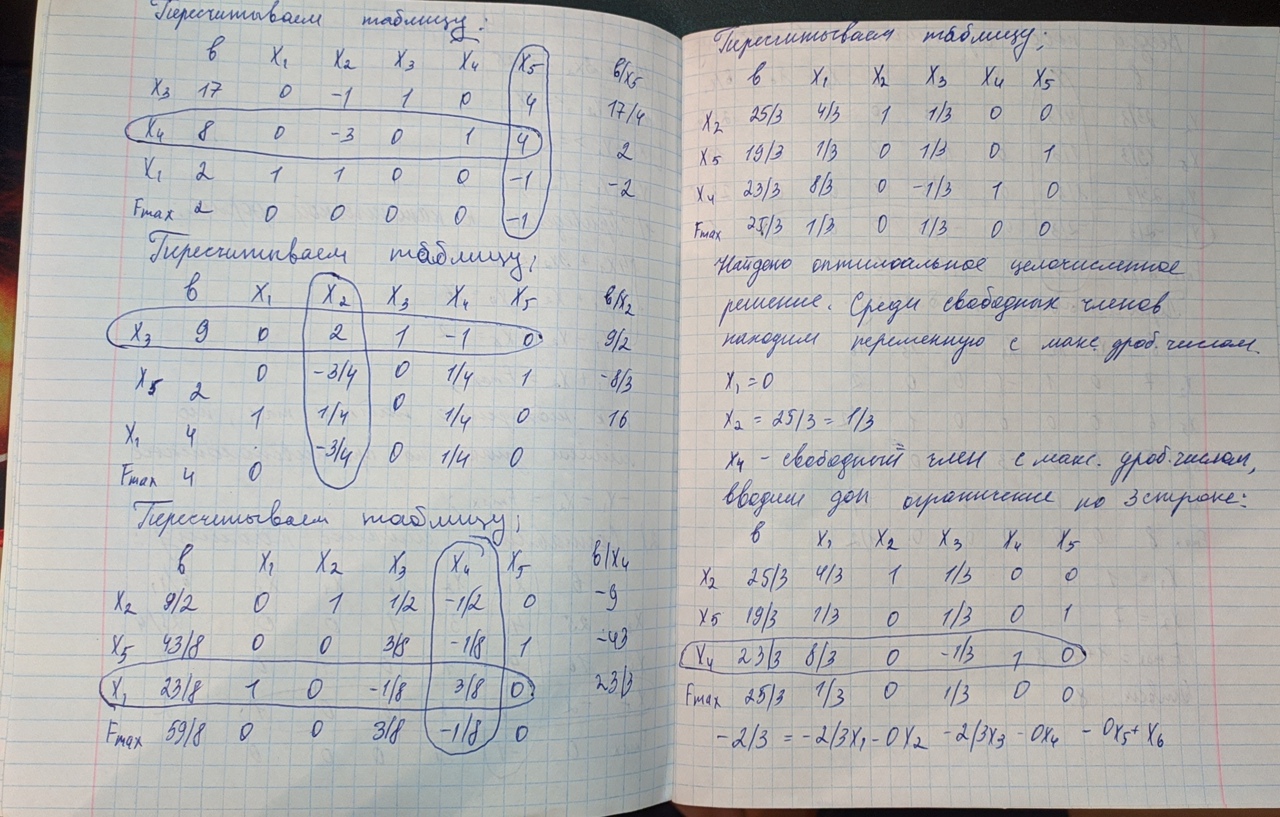 Пересчитываем таблицу:
в X₁ X₂ X₃ X₄ X₅ в/x₅
X₃ 17 0 -1 1 0 4 17/4
X₄ 8 0 -3 0 1 4 2
X₁ 2 1 1 0 0 -1 -2
Fmax 2 0 0 0 0 -1
Пересчитываем таблицу;
в X₁ X₂ X₃ X₄ X₅ в/x₂
X₃ 9 0 2 1 -1 0 9/2
X₅ 2 0 -3/4 0 1/4 1 -8/3
X₁ 4 1 1/4 0 1/4 0 16
Fmax 4 0 -3/4 0 1/4 0
Пересчитываем таблицу;
в X₁ X₂ X₃ X₄ X₅ в/x₄
X₂ 9/2 0 1 1/2 -1/2 0 -9
X₅ 43/8 0 0 3/8 -1/8 1 -43
X₁ 23/8 1 0 -1/8 3/8 0 23/3
Fmax 59/8 0 0 3/8 -1/8 0
Пересчитываем таблицу;
в X₁ X₂ X₃ X₄ X₅
X₂ 25/3 4/3 1 1/3 0 0
X₅ 19/3 1/3 0 1/3 0 1
X₄ 23/3 8/3 0 -1/3 1 0
Fmax 25/3 1/3 0 1/3 0 0
Найдено оптимоальное целочисленное
решение. Среди свободных членов
находим переменную с макс. дроб. числом.
X₁ = 0
X₂ = 25/3 = 1/3
X₄ - свободный член с макс. дроб. числом,
вводим доп ограничение по 3 строке:
в X₁ X₂ X₃ X₄ X₅
X₂ 25/3 4/3 1 1/3 0 0
X₅ 19/3 1/3 0 1/3 0 1
X₄ 23/3 8/3 0 -1/3 1 0
Fmax 25/3 1/3 0 1/3 0 0
-2/3 = -2/3X₁ - 0X₂ - 2/3X₃ - 0X₄ - 0X₅ + X₆